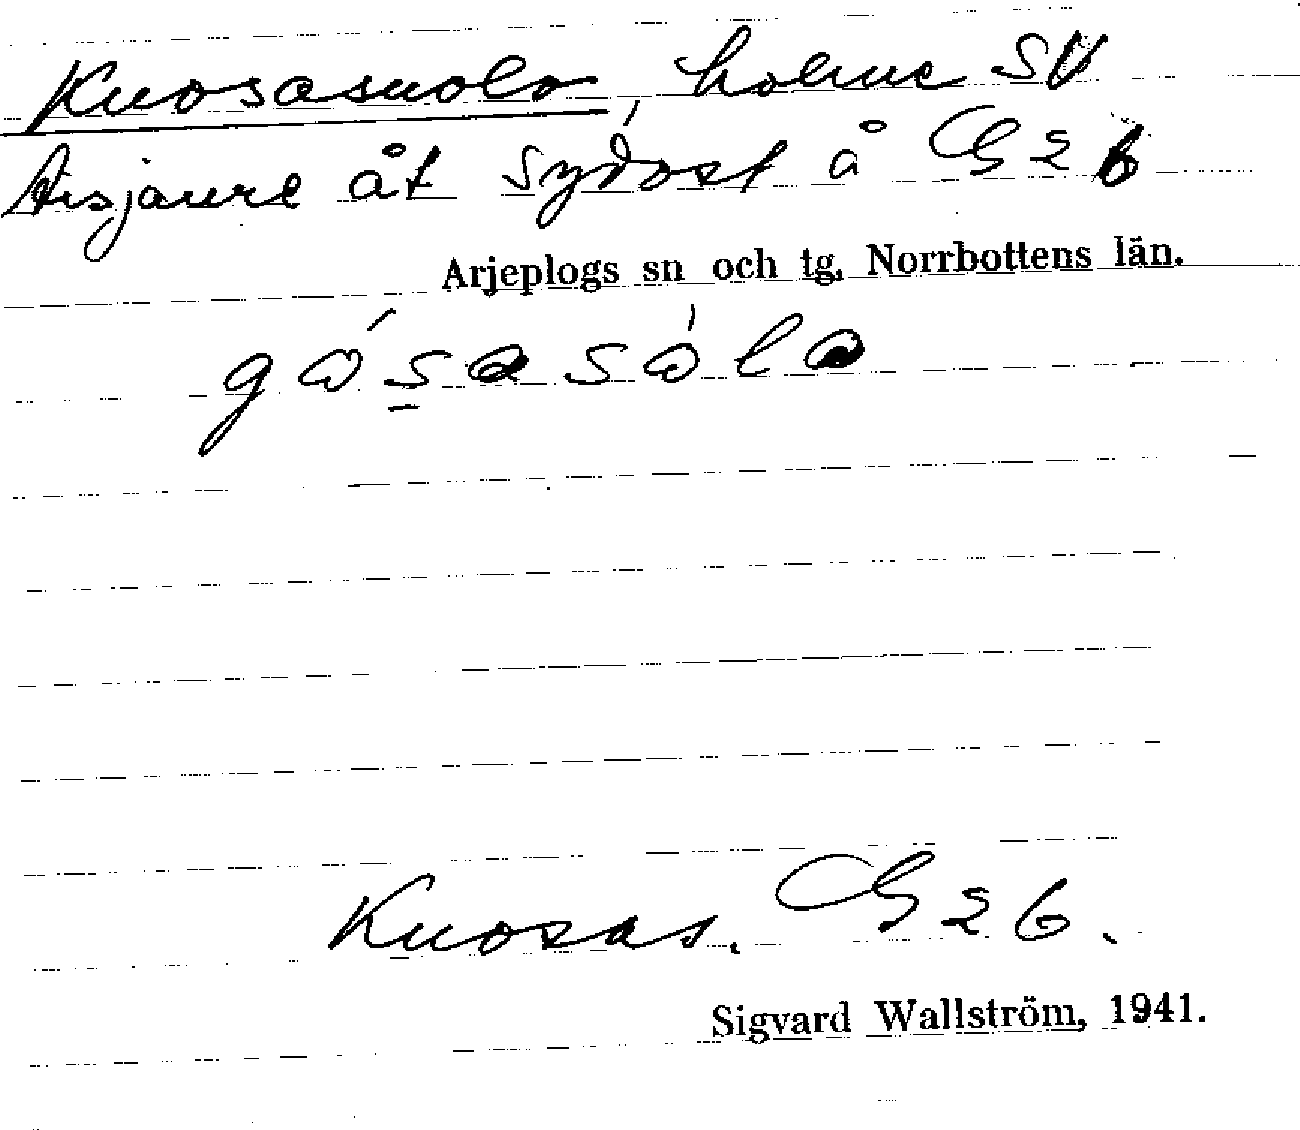 Kuosasuolo, holme SV
Aisjaure åt sydost å G 2 b
Arjeplogs sn och tg, Norrbottens län.
gω´s̱asὼla
Kuosas. G 2 b.
Sigvard Wallström, 1941.